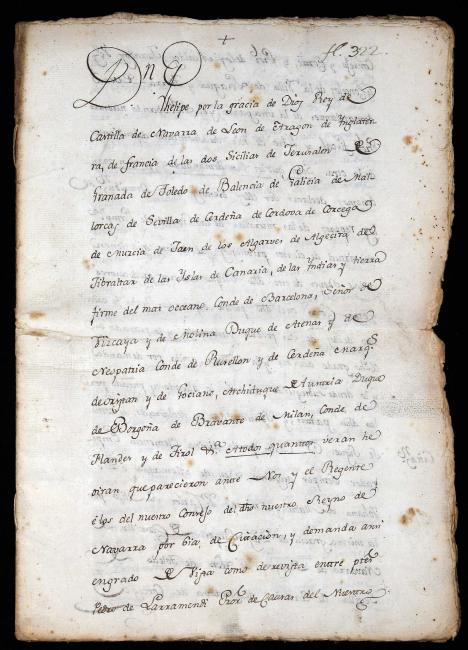 +
fl. 322.
Dn
Phelipe por la gracia de Dios Rey de
Castilla de Navarra de Leon de Aragon de Inglater
ra, de francia de las dos Sicilias de Jerusalen
Granada de Toledo de Balencia de Galicia de Mal
lorcas de Sevilla de Cerdeña de Cordova de Corcega
de Murcia de Jaen de los Algarves de Algecira de
Gibraltar de las Yslas de Canaria, de las Yndias y tierra
firme del mar occeano. Conde de Barcelona, Señor de
Vizcaya y de Molina Duque de Atenas y de
Neopatria Conde de Rusellon y de Cerdeña Marqs
de Oristan y de Gociano, Architduque de Austria Duque
de Borgoña de Bravante de Milan, Conde de
Flandes y de Tirol &a. Atodos quantos veran he
oiran que parecieron ante Nos y el Regente
e los del nuestro Consejo del dho nuestro Reyno de
Navarra por via de Citacion, y demanda assi
engrado de Vista como de revista entre ptes
Pedro de Larramendi Pror. de Causas del Nuestro